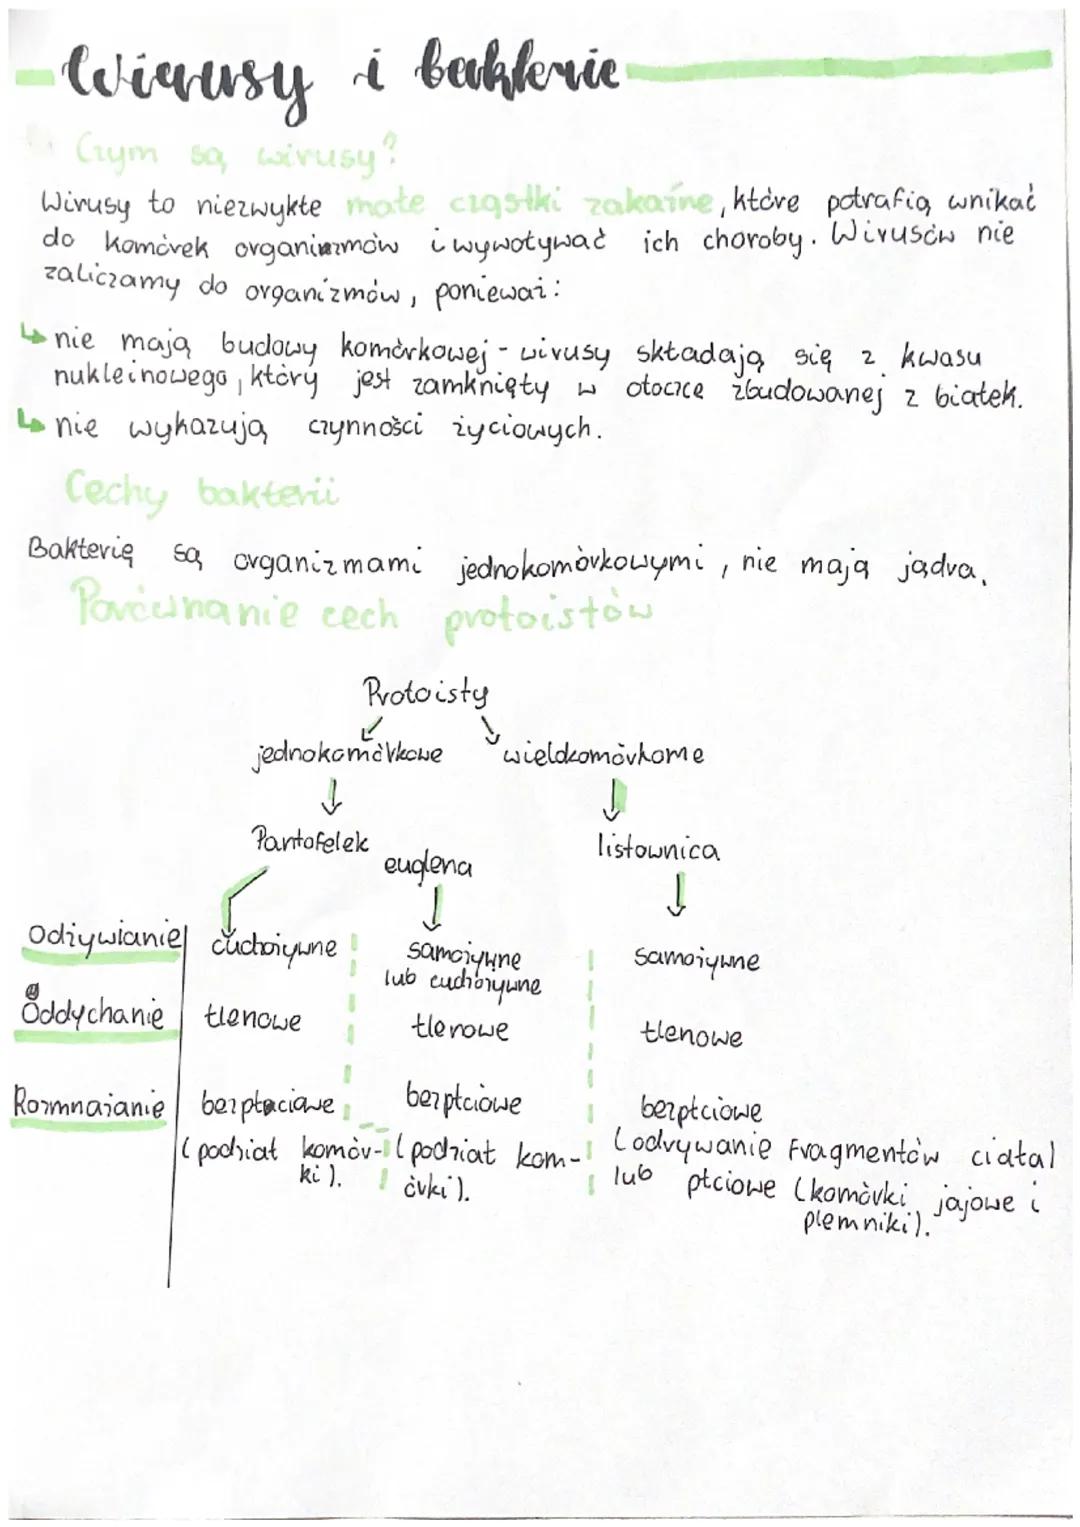 Wirusy i bakterie
Czym są wirusy?
Wirusy to niezwykłe małe cząstki zakaźne, które potrafią wnikać
do komórek organizmów i wywoływać ich choroby. Wirusów nie
zaliczamy do organizmów, ponieważ:
↳ nie mają budowy komórkowej - wirusy składają się z kwasu
nukleinowego, który jest zamknięty w otoczce zbudowanej z białek.
↳ nie wykazują czynności życiowych.
Cechy bakterii
Bakterię są organizmami jednokomórkowymi, nie mają jądra.
Porównanie cech protoistów
Protoisty
jednokomórkowe wielokomórkowe
Pantofelek euglena listownica
Odżywianie cudzożywne samożywne lub cudzożywne samożywne
Oddychanie tlenowe tlenowe tlenowe
Rozmnażanie bezpłaciowe bezpłciowe bezpłciowe
(podział komór- (podział kom- (odrywanie fragmentów ciała)
ki). órki). lub płciowe (komórki jajowe i
plemniki).